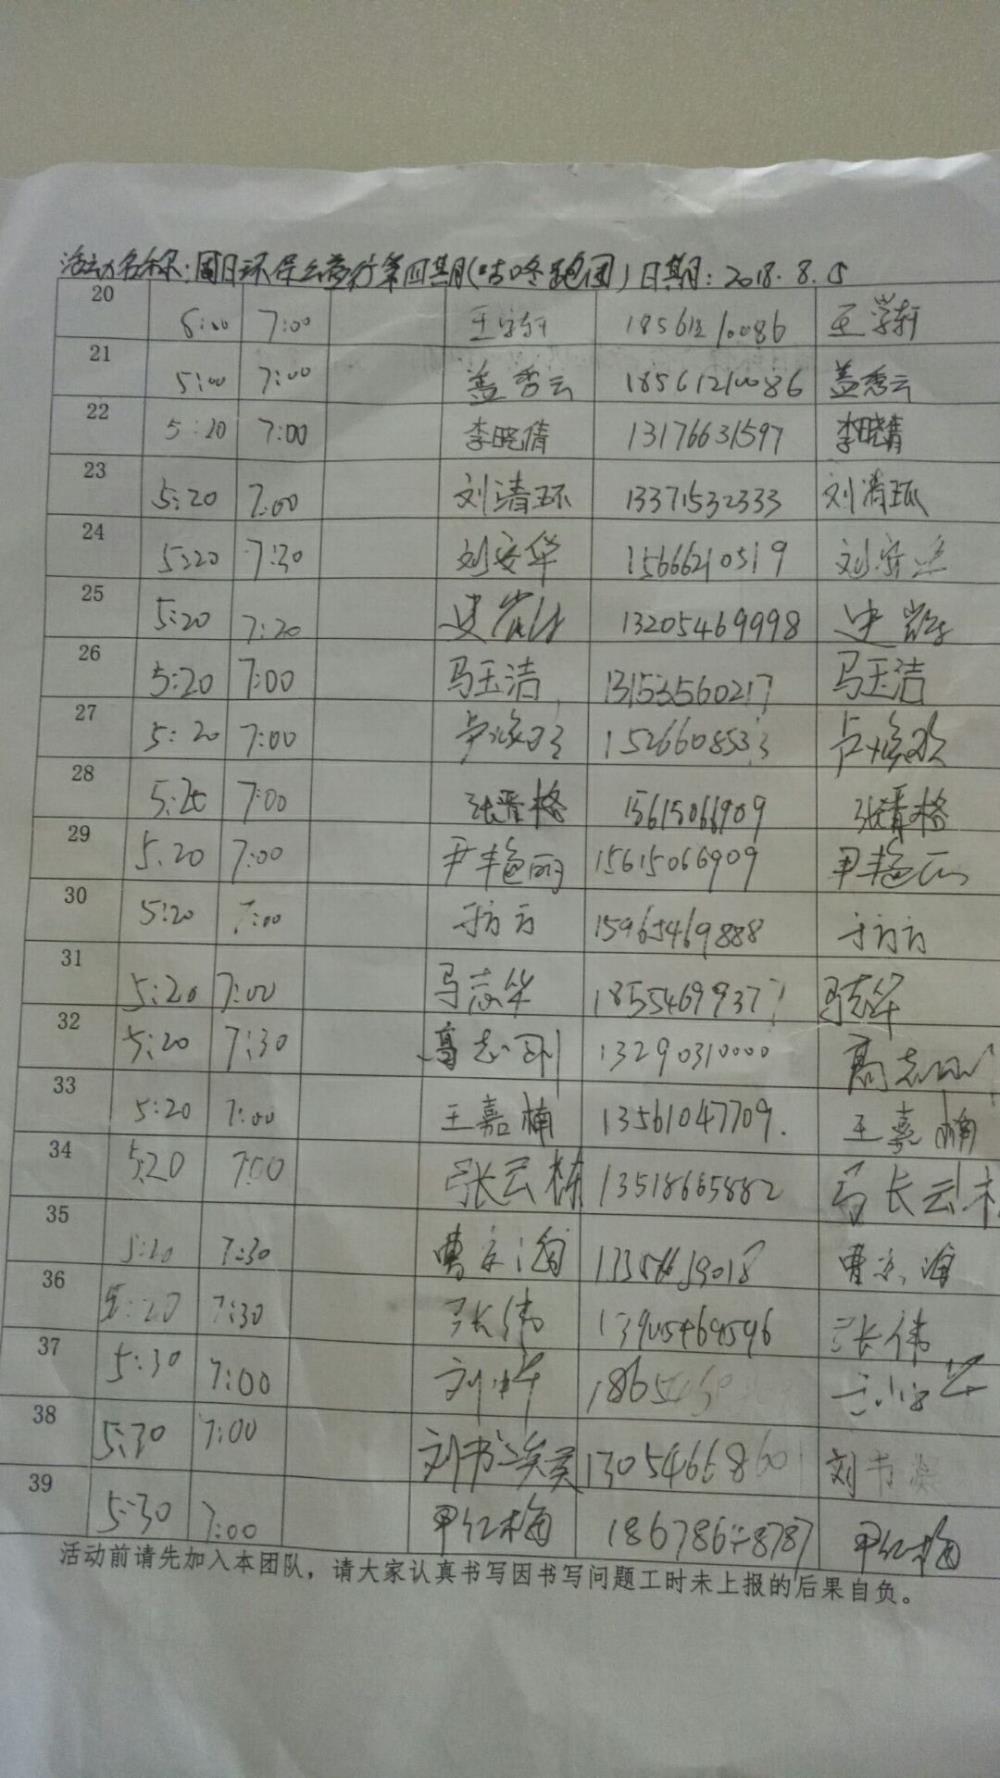 活动名称:周日环保行第四期(咕咚跑团)日期:2018.8.5
20 7:00 王学轩 18561210086 王学轩
21 5:00 7:00 盖秀云 18561210086 盖秀云
22 5:20 7:00 李晓倩 13176631597 李晓倩
23 5:20 7:00 刘清环 13371532333 刘清环
24 5:20 7:30 刘安华 15666210519 刘安华
25 5:20 7:20 史 13205469998 史
26 5:20 7:00 马玉洁 13153560217 马玉洁
27 5:20 7:00 15266085333 卢
28 5:20 7:00 张晋格 15615066909 张晋格
29 5.20 7:00 尹艳丽 15615066909 尹艳丽
30 5:20 7:00 于方方 15965469888 于方方
31 5:20 7:00 马志华 18554699377 马志华
32 5:20 7:30 高志刚 13290310000 高志刚
33 5:20 7:00 王嘉楠 13561047709. 王嘉楠
34 5:20 7:00 张云栋 13518665882 张云栋
35 5:20 7:30 曹京海 曹京海
36 5:20 7:30 张伟 13905469596 张伟
37 5:30 7:00 刘
38 5:30 7:00 刘书 13054668601 刘书
39 5:30 7:00 红梅 红梅
活动前请先加入本团队，请大家认真书写因书写问题工时未上报的后果自负。